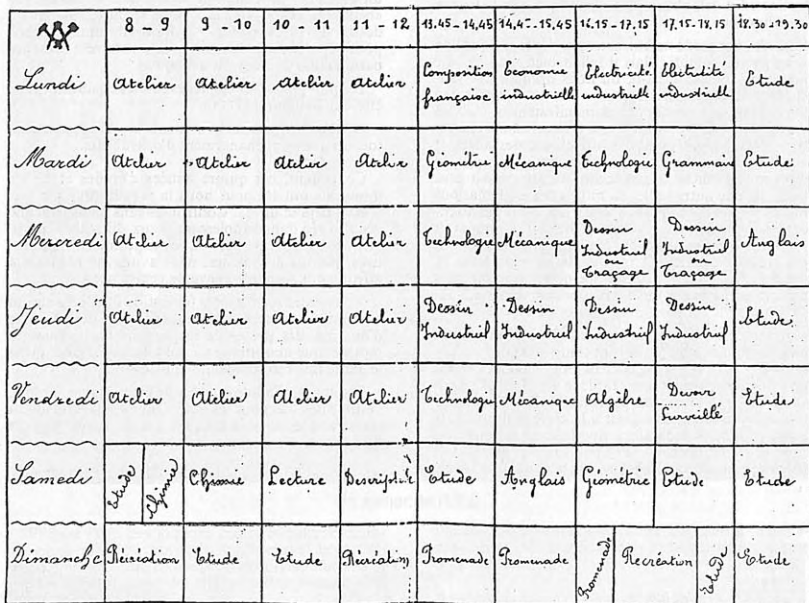 8 - 9 9 - 10 10 - 11 11 - 12 13.45 - 14.45 14.45 - 15.45 16.15 - 17.15 17.15 - 18.15 18.30 - 19.30
Lundi Atelier Atelier Atelier Atelier Composition française Économie industrielle Électricité industrielle Électricité industrielle Étude
Mardi Atelier Atelier Atelier Atelier Géométrie Mécanique Technologie Grammaire Étude
Mercredi Atelier Atelier Atelier Atelier Technologie Mécanique Dessin Industriel ou Traçage Dessin Industriel ou Traçage Anglais
Jeudi Atelier Atelier Atelier Atelier Dessin Industriel Dessin Industriel Dessin Industriel Dessin Industriel Étude
Vendredi Atelier Atelier Atelier Atelier Technologie Mécanique Algèbre Devoir Surveillé Étude
Samedi Étude Chimie Chimie Lecture Descriptive Étude Anglais Géométrie Étude Étude
Dimanche Récréation Étude Étude Récréation Promenade Promenade Promenade Recréation Étude Étude